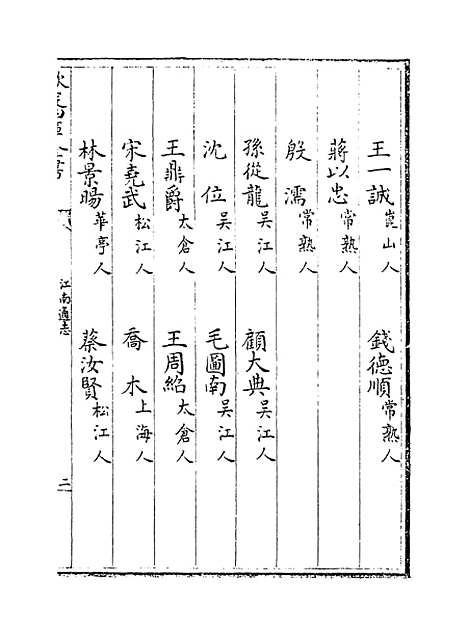 王一誠崑山人　錢德順常熟人
蔣以忠常熟人
殷濡常熟人
孫從龍吳江人　顧大典吳江人
沈位吳江人　毛圖南吳江人
王鼎爵太倉人　王周紹太倉人
宋堯武松江人　喬木上海人
林景暘華亭人　蔡汝賢松江人
江南通志
二